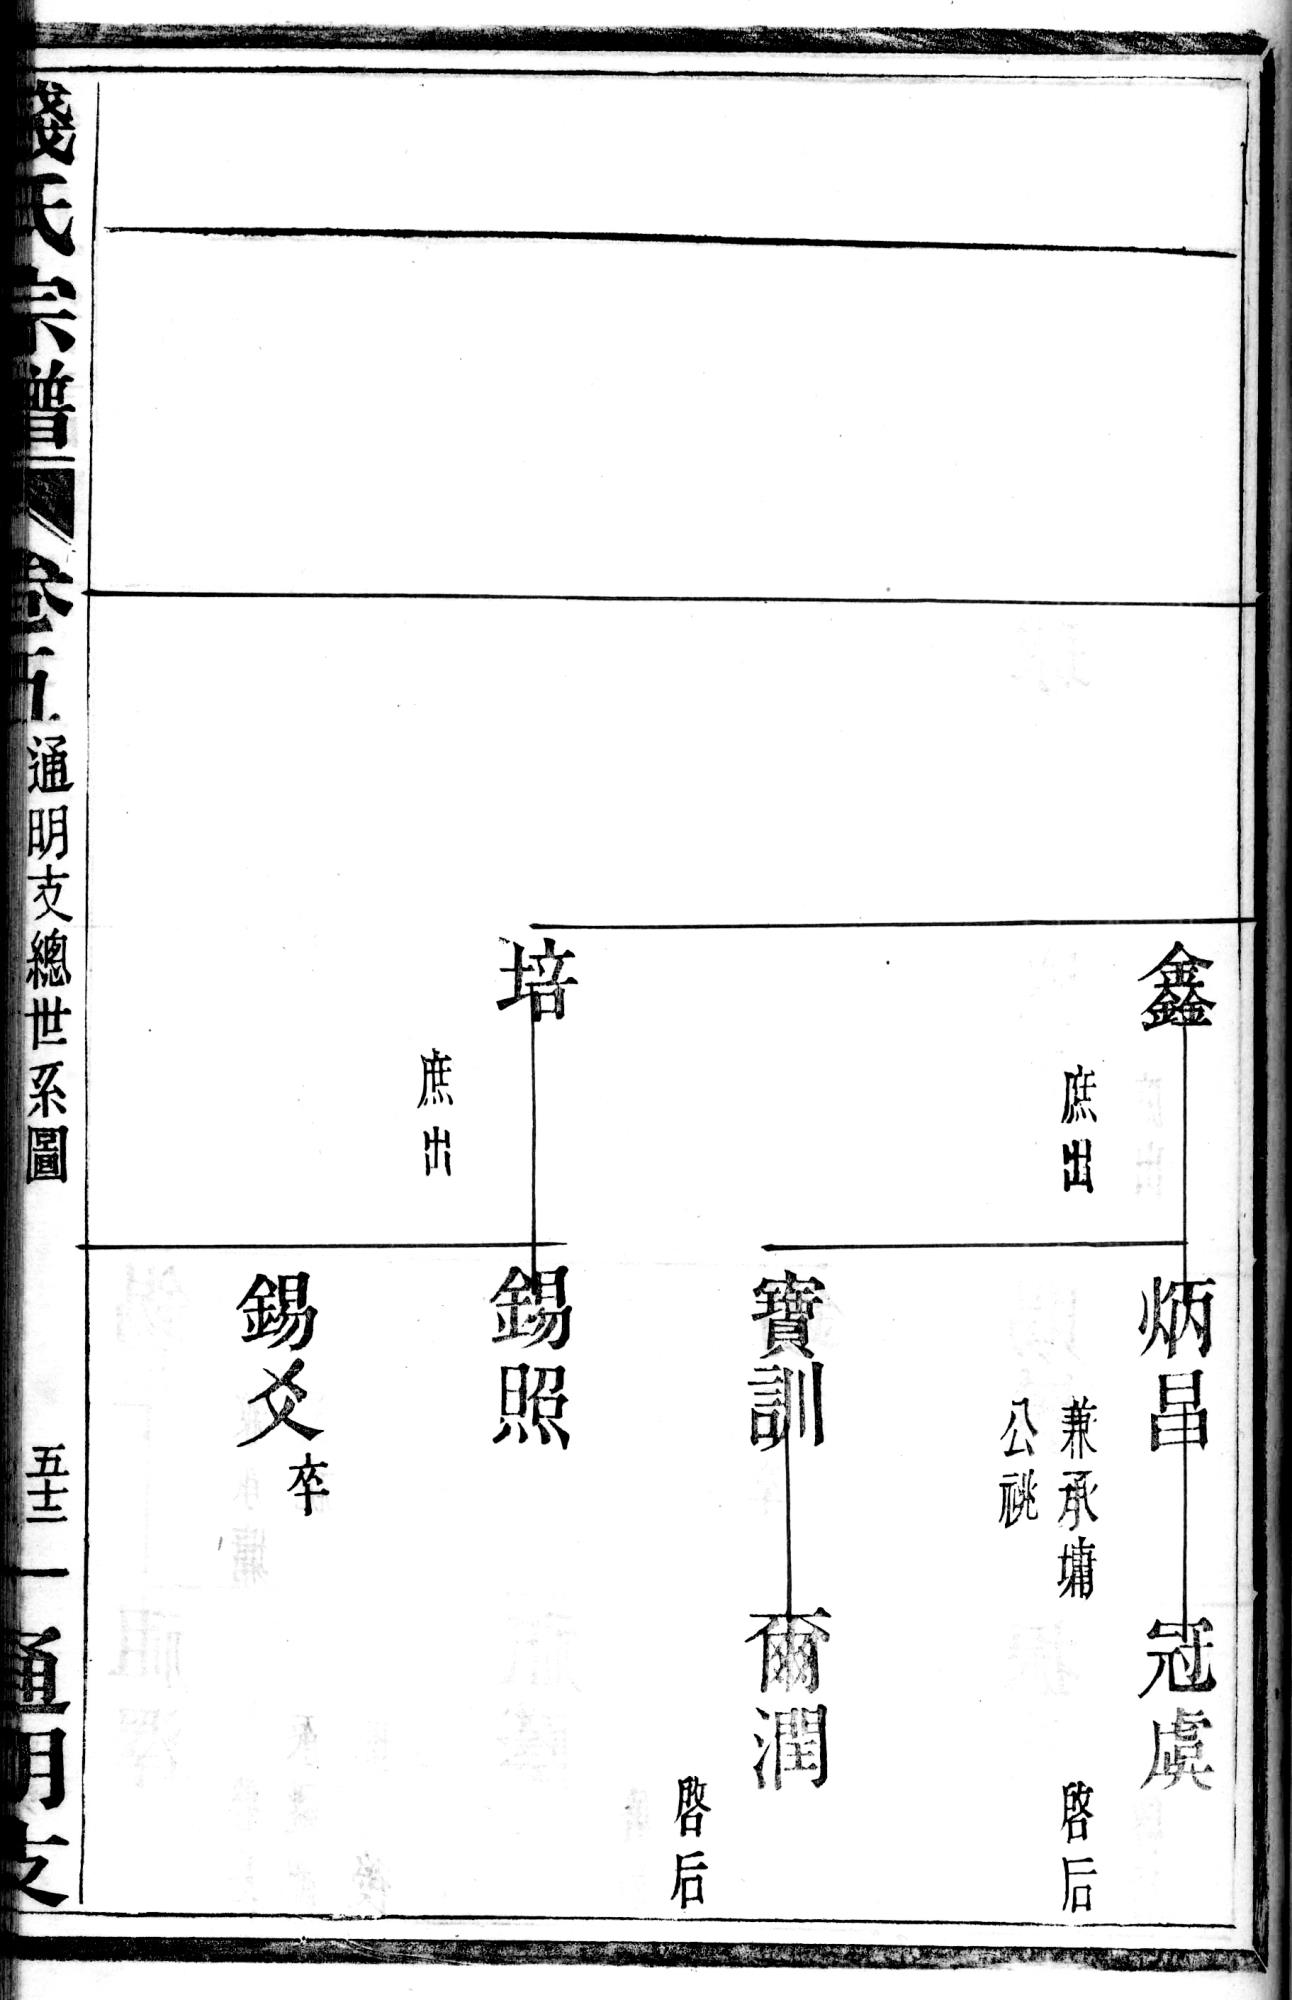 鑫
庶出
炳昌
兼承墉
公祧
冠虞
啓后
寶訓
爾潤
啓后
培
庶出
錫照
錫爻
卒
錢氏宗譜
卷五
通明支總世系圖
五十二
通明支